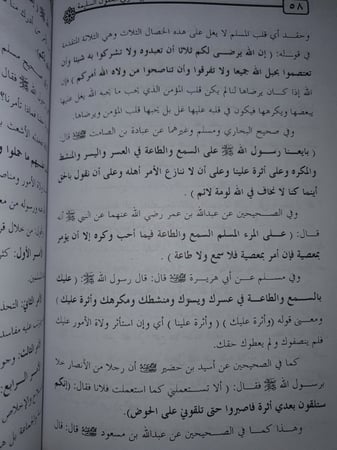 ٥٨
وحقـد أي قلب المسلم لا يغل على هذه الخصال الثلاث وهي الثلاثة المتقدمة
في قوله: ( إن الله يرضـى لكم ثلاثا أن تعبدوه ولا تشركوا به شيئا وأن
تعتصموا بحبل الله جميعا ولا تفرقوا وأن تناصحوا من ولاه الله أمركم ) فإن
الله إذا كان يرضاها لنا لم يكن لقلب المؤمن الذي يحب ما يحبه الله يغل عليها
يبغضها ويكرهها فيكون في قلبه عليها غل بل يحبها قلب المؤمن ويرضاها.
وفي صحيح البخاري ومسلم وغيرهما عن عبادة بن الصامت ﷺ قال
( بايعنـا رسول الله ﷺ على السمع والطاعة في العسر واليسر والمنشط
والمكره وعلى أثرة علينا وعلى أن لا ننازع الأمر أهله وعلى أن نقول بالحق
أينما كنا لا نخاف في الله لومة لائم ) .
وفي الصحيحين عن عبدالله بن عمر رضي الله عنهما عن النبي ﷺ أنه
قال: ( علـى المرء المسلم السمع والطاعة فيما أحب وكره إلا أن يؤمر
بمعصية فإن أمر بمعصية فلا سمع ولا طاعة ) .
وفي مسلم عن أبي هريرة ﷺ قال: قال رسول الله ﷺ: ( عليك
بالسمع والطاعـة في عسرك ويسرك ومنشطك ومكرهك وأثرة عليك )
ومعنى قوله (وأثرة عليك ) ( وأثرة علينا ) أي وإن استأثر ولاة الأمور عليك
فلم ينصفوك ولم يعطوك حقك.
كما في الصحيحين عن أسيد بن حضير ﷺ أن رجلا من الأنصار خلا
برسول الله ﷺ فقـال: ( ألا تستعملني كما استعملت فلانا فقال: (إنكم
ستلقون بعدي أثرة فاصبروا حتى تلقوني على الحوض).
وهـذا كمـا في الصحيحين عن عبدالله بن مسعود ﷺ قال: قال